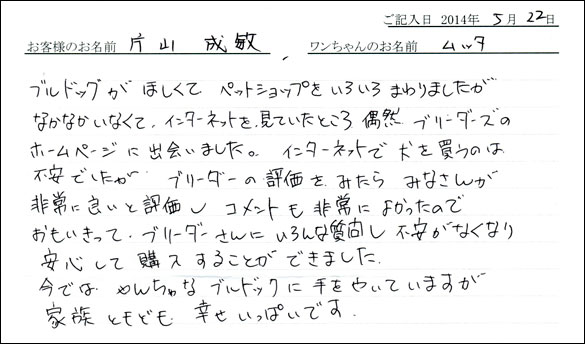 ご記入日 2014年 5月 22日
お客様のお名前 片山 成敏 ワンちゃんのお名前 ムッタ
ブルドッグが ほしくて ペットショップを いろいろ まわりましたが
なかなかいなくて、インターネットを見ていたところ 偶然 ブリーダーズの
ホームページに出会いました。 インターネットで 犬を買うのは
不安でしたが ブリーダーの評価を みたら みなさんが
非常に良いと評価し コメントも 非常に よかったので
おもいきって、ブリーダーさんに いろんな質問し 不安がなくなり
安心して購入することができました。
今では やんちゃな ブルドックに 手をやいていますが
家族ともども 幸せいっぱいです。